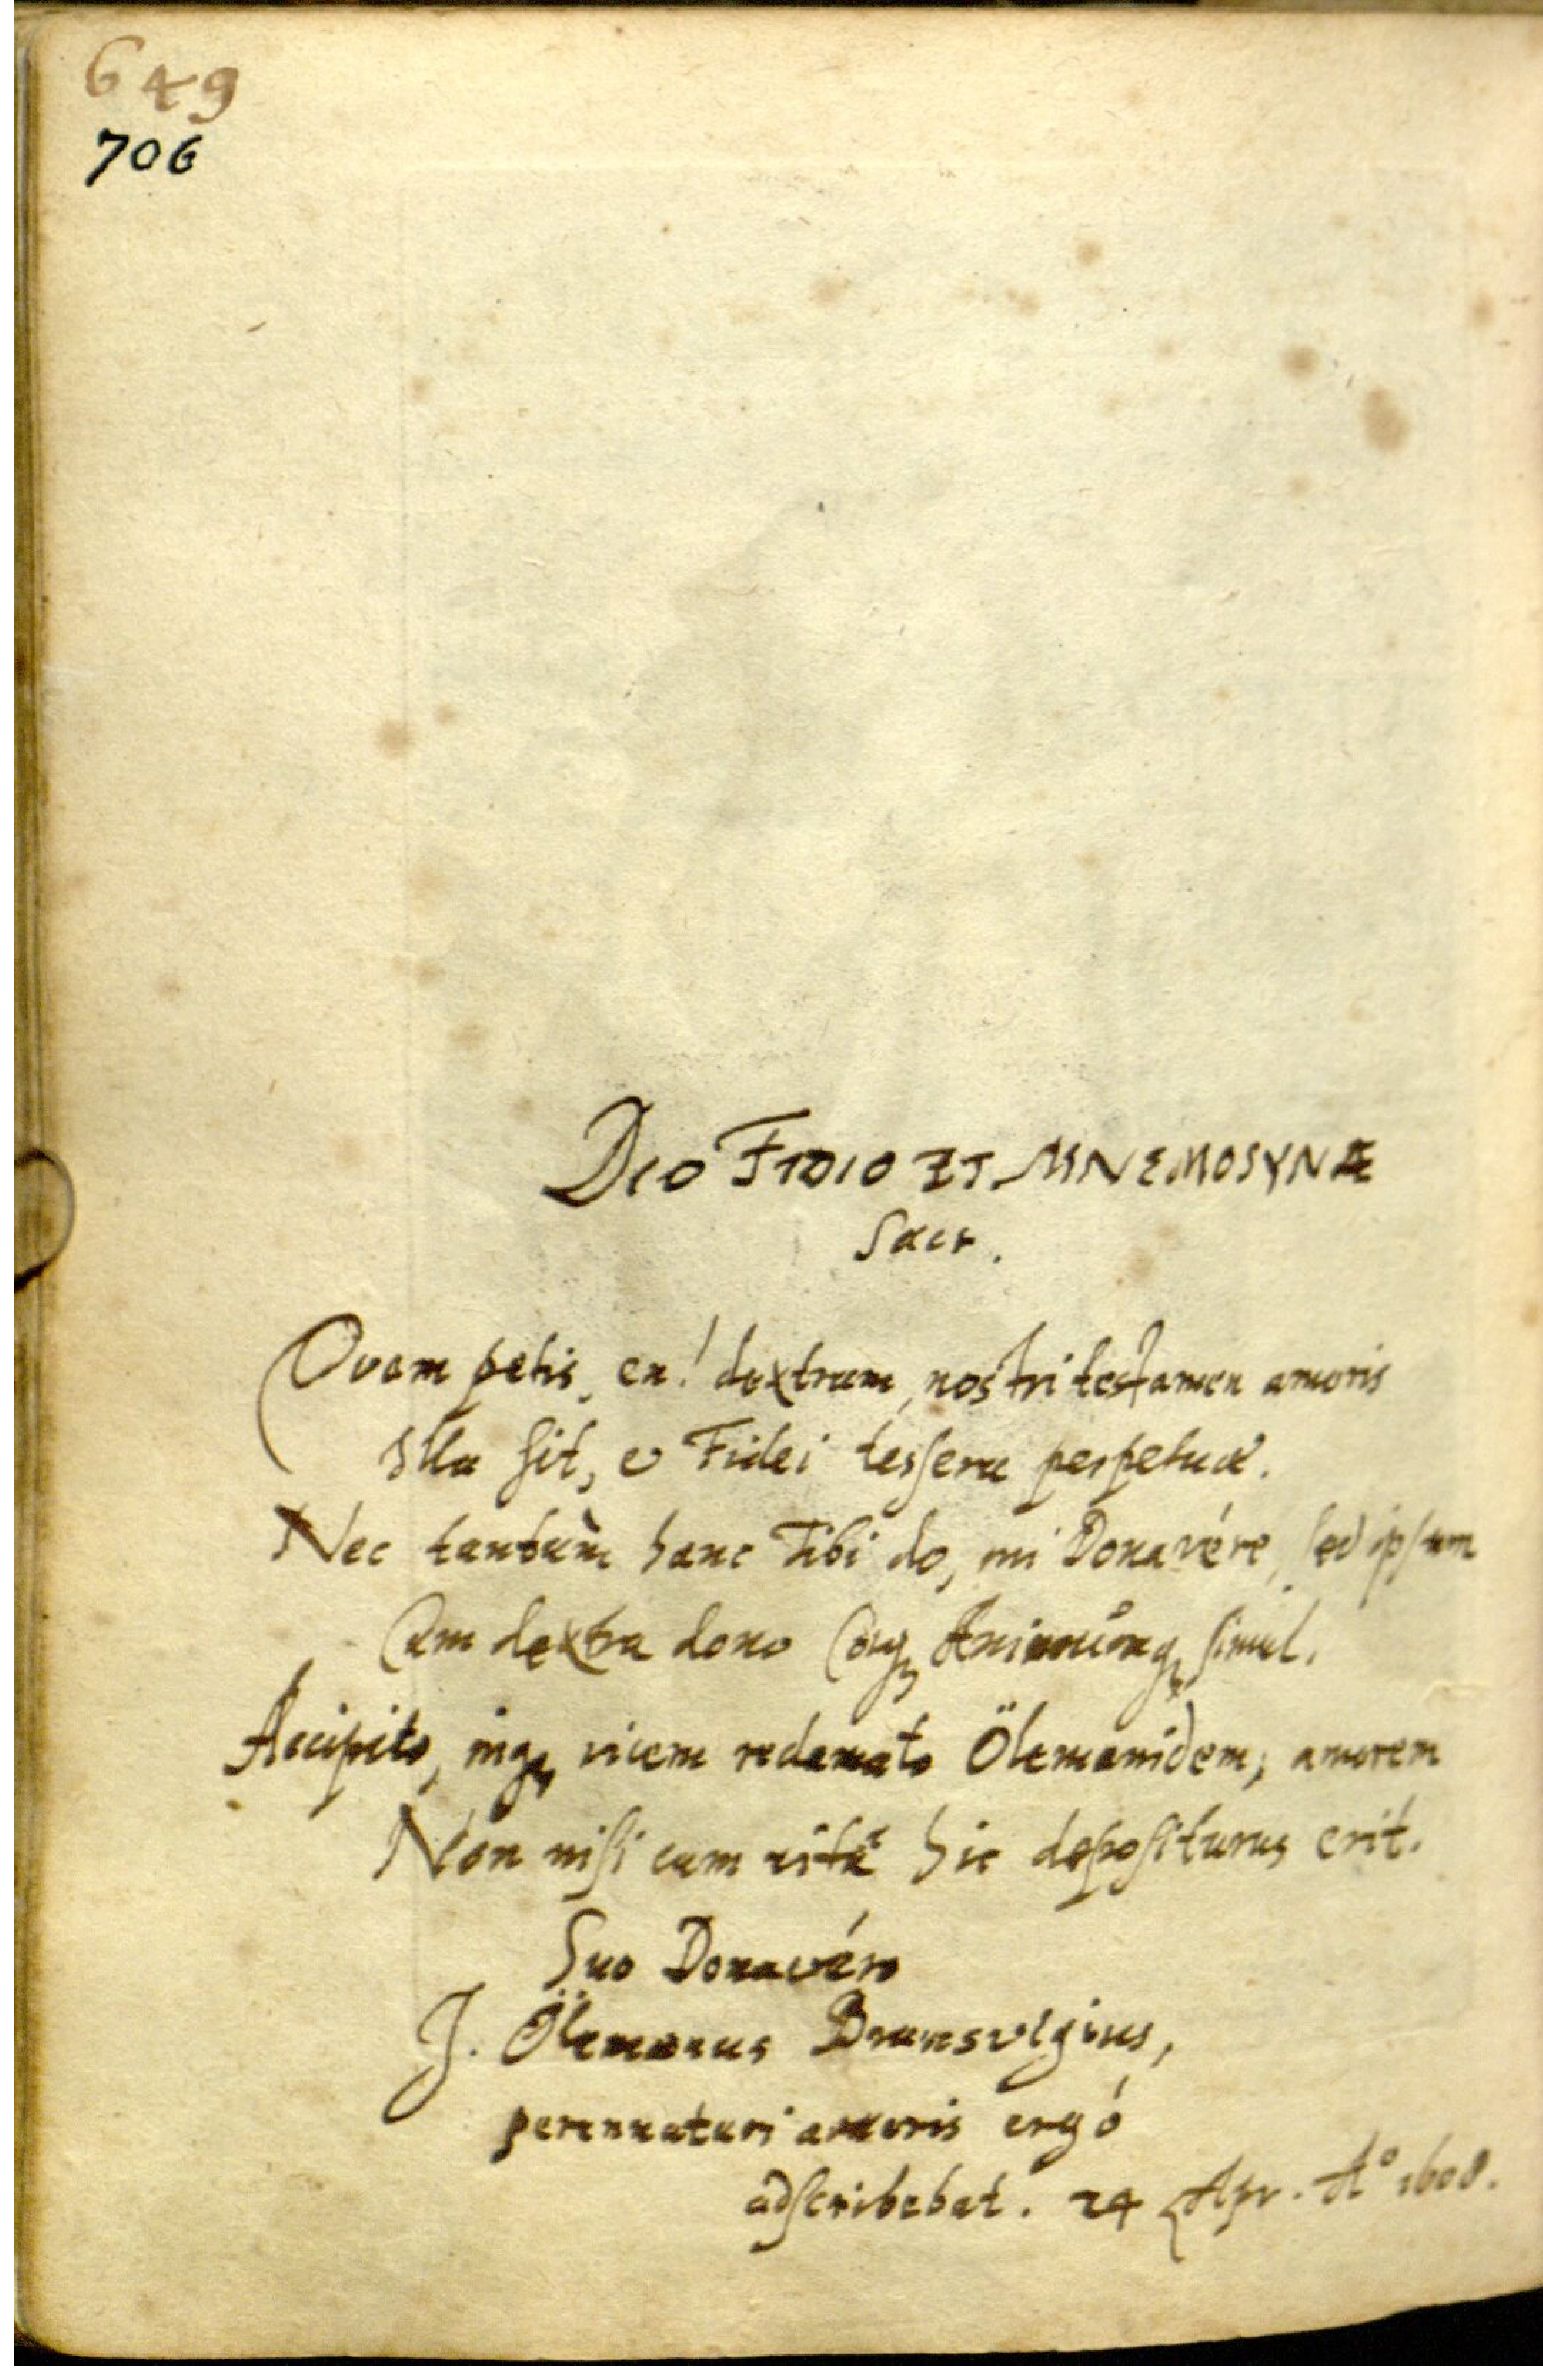 649
706
DIO FIDIO ET MNEMOSYNÆ
Sacr.
Quam petis, en! dextram, nostri testamen amoris
Illa sit, & Fidei tessera perpetuæ.
Nec tantùm hanc Tibi do, mi Donavére, sed ipsum
Cum dextra dono Corq; Animumq; simul.
Accipito, inq; vicem redamato Ölemanidem; amorem
Non nisi cum vitâ hic depositurus erit.
Suo Donavéro
J. Ölemanus Brunsvigius,
perennaturi amoris ergó
adscribebat. 24 Apr. A° 1608.